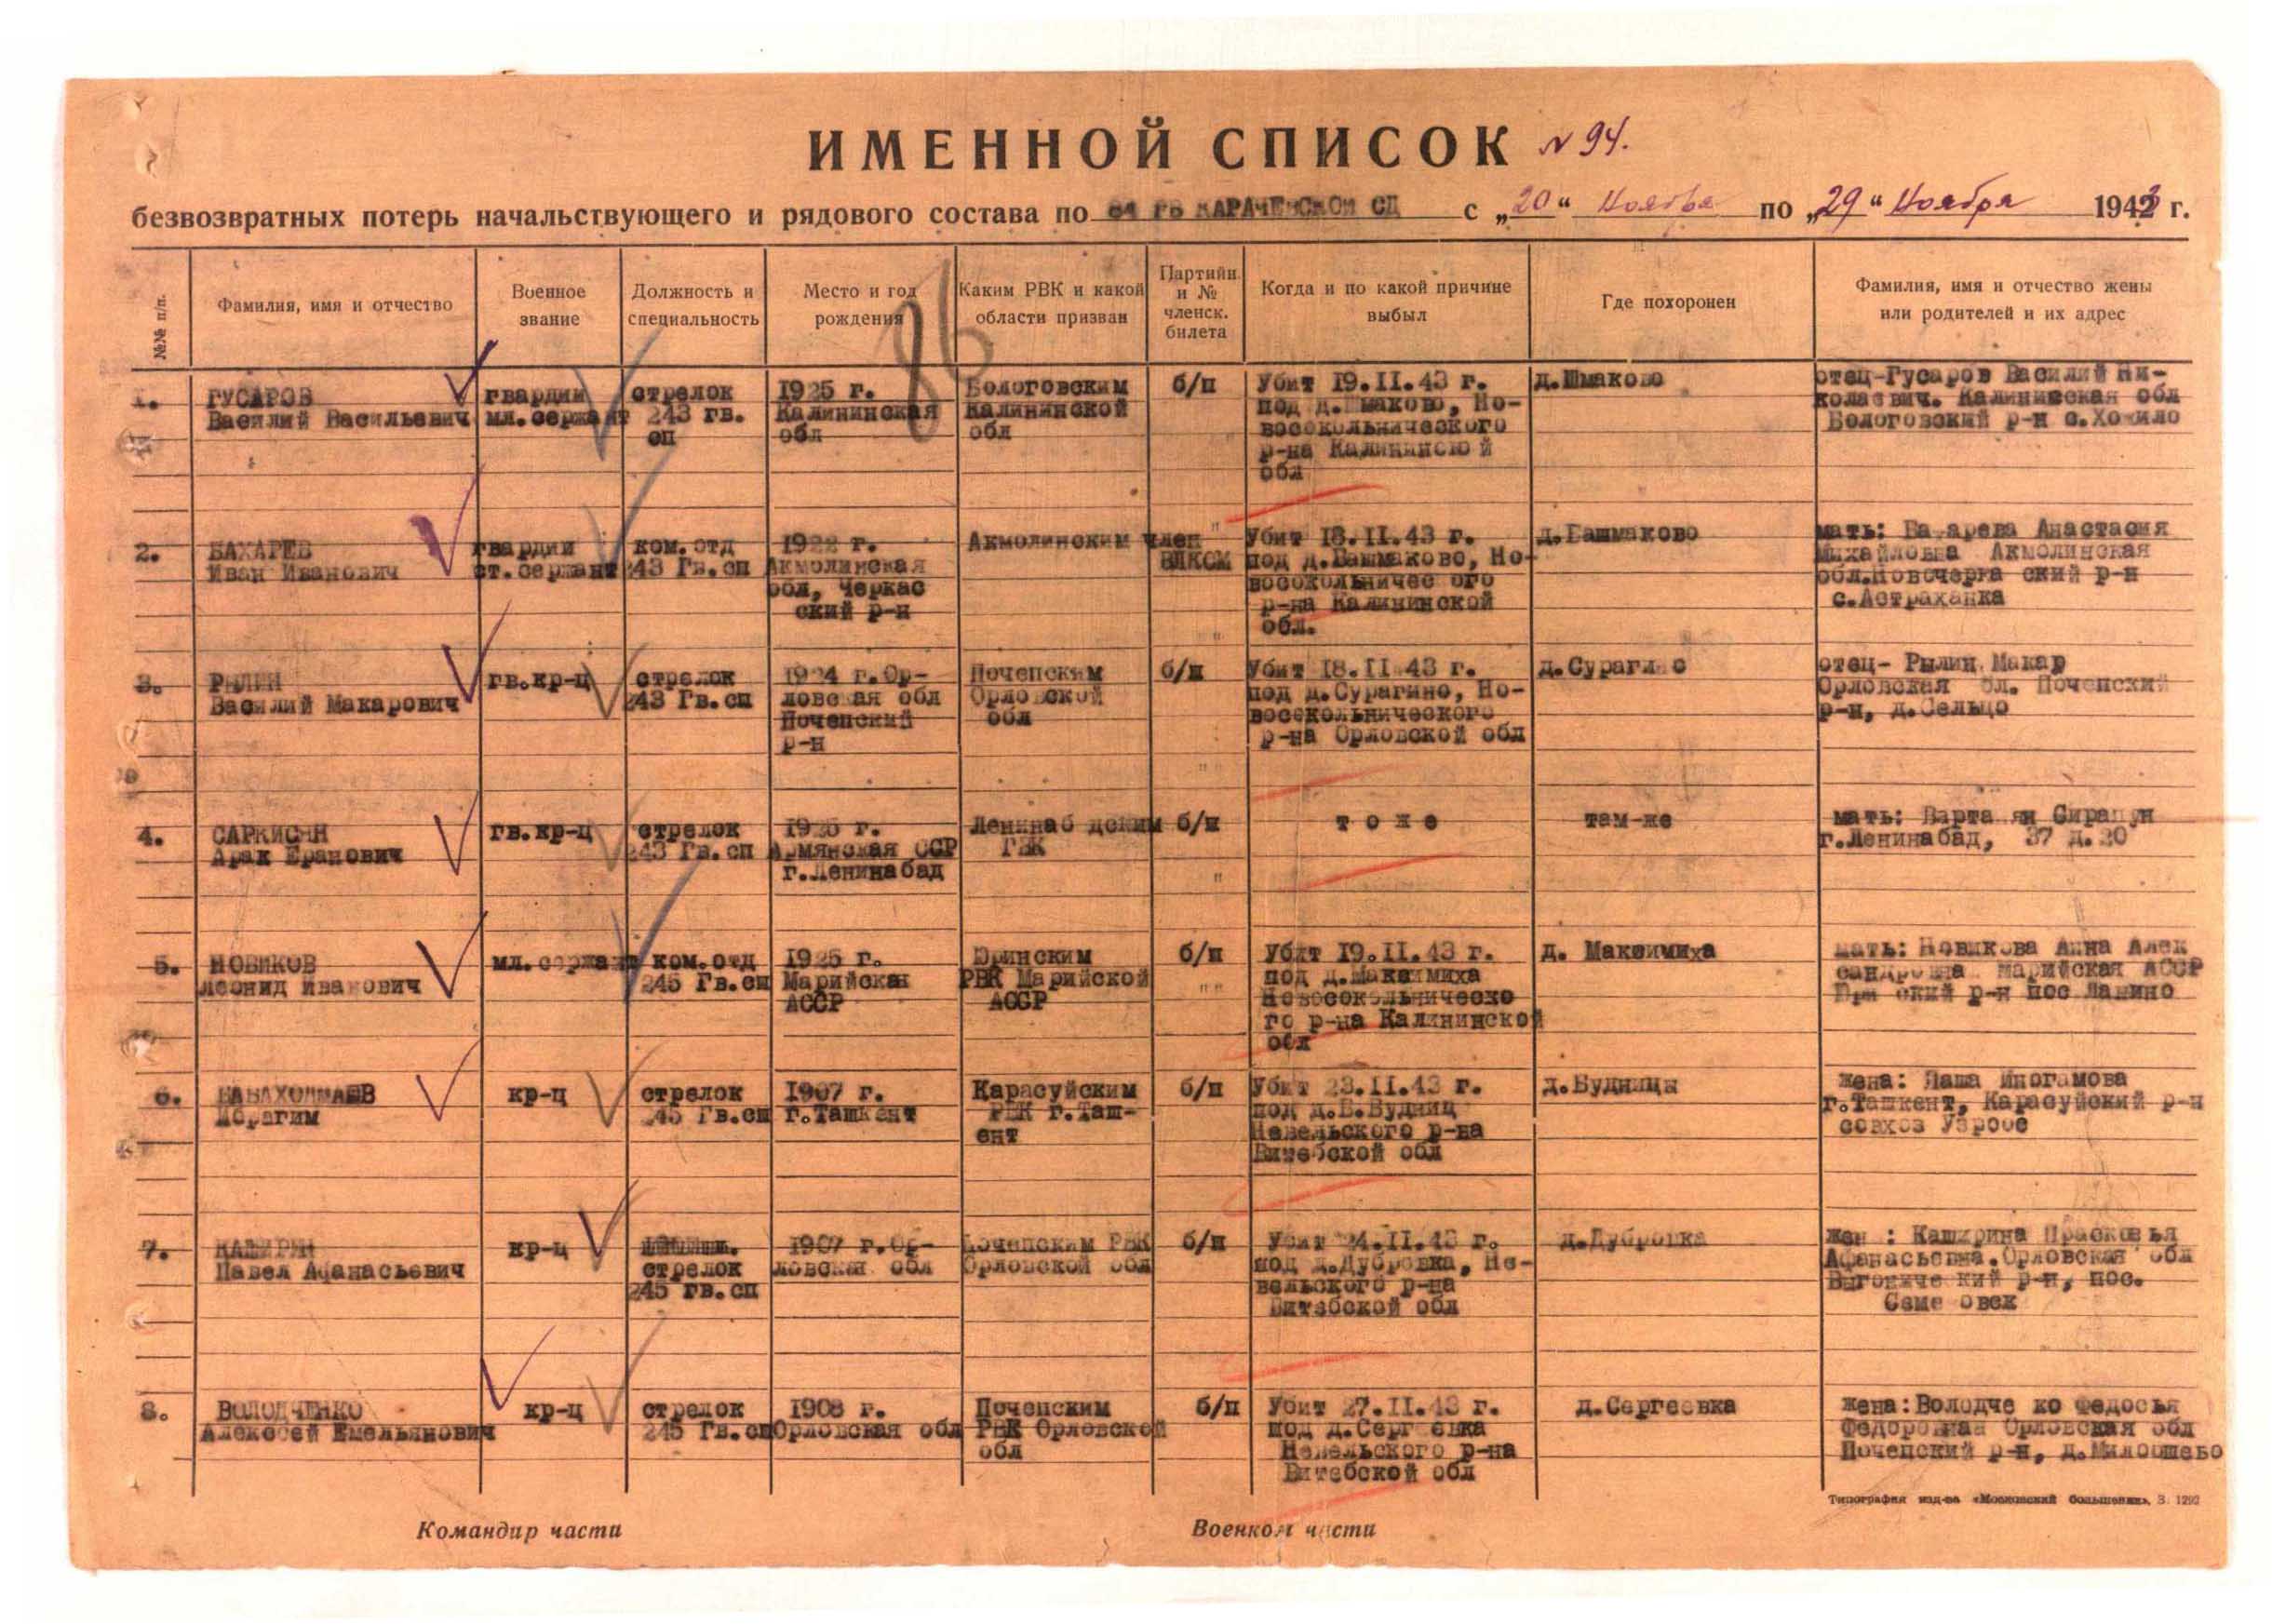 ИМЕННОЙ СПИСОК № 94.
безвозвратных потерь начальствующего и рядового состава по КАРАЧЕВСКОЙ СД с „20“ Ноября по „29“ Ноября 1943 г.
№№ п/п.
Фамилия, имя и отчество
Военное
звание
Должность и
специальность
Место и год
рождения
Каким РВК и какой
области призван
Партийн.
и №
членск.
билета
Когда и по какой причине
выбыл
Где похоронен
Фамилия, имя и отчество жены
или родителей и их адрес
86
1.
ГУСАРОВ
Василий Васильевич
гвардии
мл.сержант
стрелок
243 гв.
сп
1925 г.
Калининская
обл
Бологовским
Калининской
обл
б/п
Убит 19.II.43 г.
под д.Шмаково, Но-
восокольнического
р-на Калининской
обл
д.Шмаково
отец-Гусаров Василий Ни-
колаевич. Калининская обл
Бологовский р-н
2.
БАХАРЕВ
Иван Иванович
гвардии
ст.сержант
ком.отд
243 Гв.сп
1922 г.
Акмолинская
обл, Черкас
ский р-н
Акмолинским
член
ВЛКСМ
Убит 18.II.43 г.
под д.Башмаково, Но-
восокольничес ого
р-на Калининской
обл.
д.Башмаково
мать: Ба арева Анастасия
Михайловна Акмолинская
обл.Новочерка ский р-н
с.Астраханка
3.
РЫЛИН
Василий Макарович
гв.кр-ц
стрелок
243 Гв.сп
1924 г.Ор-
ловс ая обл
Почепский
р-н
Почепским
Орло ской
обл
б/п
Убит 18.II 43 г.
под д.Сурагино, Но-
восокольнического
р-на Орловской обл
д.Сурагино
отец- Рылин Макар
Орловская бл. Почепский
р-н, д.Сельцо
4.
САРКИСЯН
Арак Еранович
гв.кр-ц
стрелок
243 Гв.сп
Армянская ССР
г.Ленинабад
Ленинаб дским
ГВК
б/п
т о ж е
там-же
мать: Варта ян
г.Ленинабад, 37 д.20
5.
НОВИКОВ
Леонид Иванович
мл.сержант
ком.отд
245 Гв.сп
1925 г.
Марийская
АССР
Юринским
РВК Марийской
АССР
б/п
Убит 19.II.43 г.
под д.Максимиха
Новосокольническо
го р-на Калининской
обл
д. Максимиха
мать: Новикова Анна Алек
сандровна Марийская АССР
Юри ский р-н пос Ланино
6.
Ибрагим
кр-ц
стрелок
245 Гв.сп
1907 г.
г.Ташкент
Карасуйским
РВК г.Таш-
ент
б/п
Убит 23.II.43 г.
под д.Б.Будниц
Невельского р-на
Витебской обл
д.Будницы
жена: Паша Иногамова
г.Ташкент, Карасуйский р-н
совхоз
7.
КАШИРИН
Павел Афанасьевич
кр-ц
стрелок
245 гв.сп
1907 г.Ор-
ловская обл
Почепским РВК
Орловской обл
б/п
Убит 24.II.43 г.
под д.Дубровка, Не-
вельского р-на
Витебской обл
д.Дубровка
жен : Каширина Прасковья
Афанасьевна.Орловская обл
Выгониче кий р-н, пос.
Семе овск
8.
ВОЛОДЧЕНКО
Алексей Емельянович
кр-ц
стрелок
245 Гв.сп
1908 г.
Орловская обл
Почепским
РВК Орловской
обл
б/п
Убит 27.II.43 г.
под д.Серг евка
Невельского р-на
Витебской обл
д.Сергеевка
жена:Володче ко Федосья
Федоровна Орловская обл
Почепский р-н,
Типография изд-ва «Московский большевик», З. 1292
Командир части
Военком части